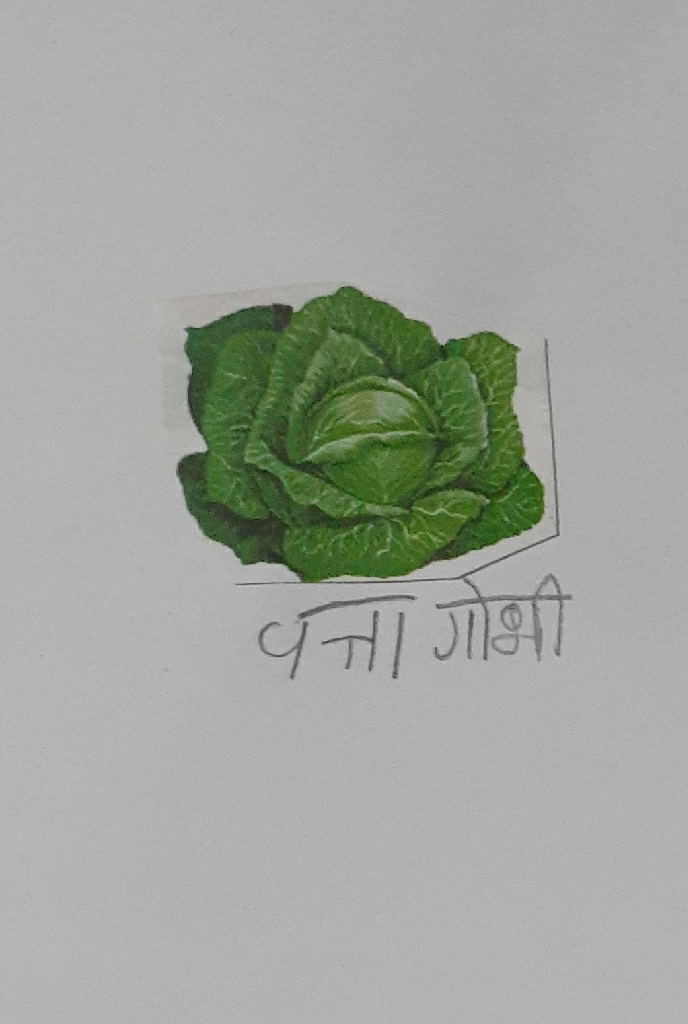 पत्ता गोभी